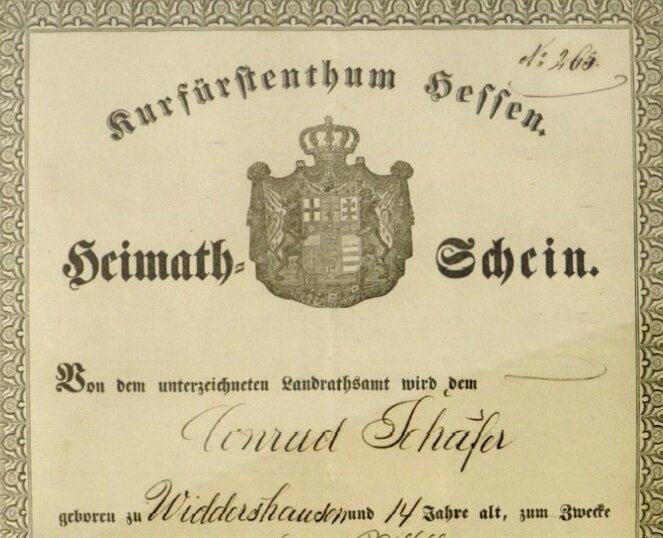 No: 263.
Kurfürstenthum Hessen.
Heimath- Schein.
Von dem unterzeichneten Landrathsamt wird dem
Conrad Schäfer
geboren zu Widdershausen und 14 Jahre alt, zum Zwecke